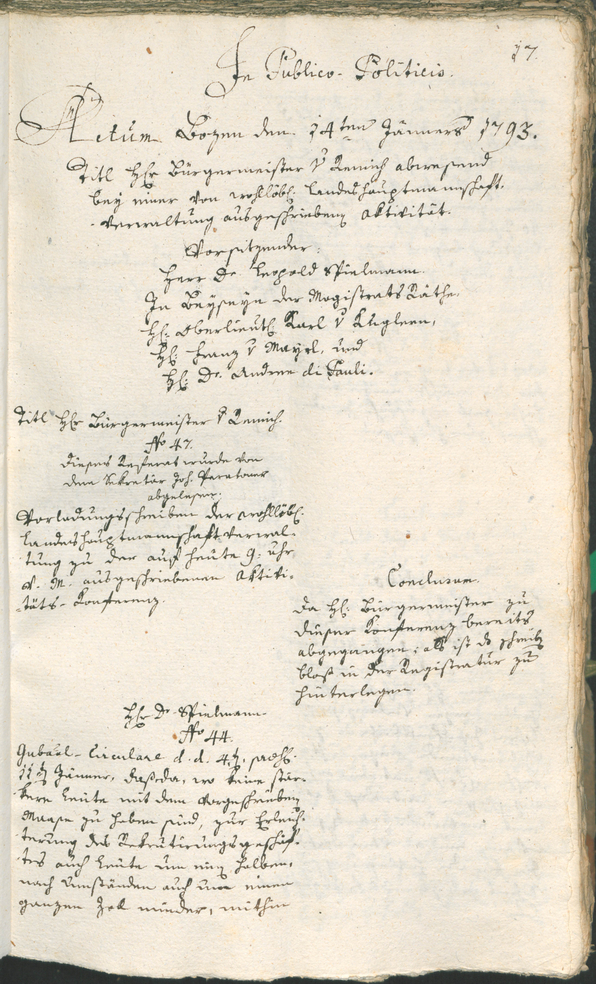 17.
In Publico-Politicis.
Actum Bozen den 14ten Jänners 1793.
Titl Hr Bürgermeister v Remich abwesend
bey einer von wohllöbl. Landeshauptmannschaft.
Verwaltung ausgeschriebenen Aktivität.
Vorsitzender:
Herr Dr Leopold Spielmann.
In Beyseyn der Magistrats Räthe.
Hl. Oberlieut. Karl v
Hl. Franz v Mayrl, und
Hl. Dr. Andree di Pauli.
Titl Hr Bürgermeister v Remich.
No 47.
Dieses Referat wurde von
dem Sekretär Joh. Paratoner
abgelesen.
Vorladungsschreiben der wohllöbl.
Landeshauptmannschaft. Verwal-
tung zu der auf heute 9: uhr
V. M. ausgeschriebenen Aktivi-
täts-Konferenz.
Conclusum.
Da Hl: Bürgermeister zu
dieser Konferenz bereits
abgegangen; als ist ds schreib
bloß in der Registratur zu
hinterlegen.
Hr Dr Spielmann.
No 44.
Gubal-Circulare d. d. 4t,
11t Jänner, daß da, wo keine stär-
kere Leute mit dem vorgeschrieben
Maase zu haben sind, zur Erleich-
terung des Rekrutirungsgeschäf-
tes auch Leute um einen halben,
nach Umständen auch um einen
ganzen Zoll minder, mithin